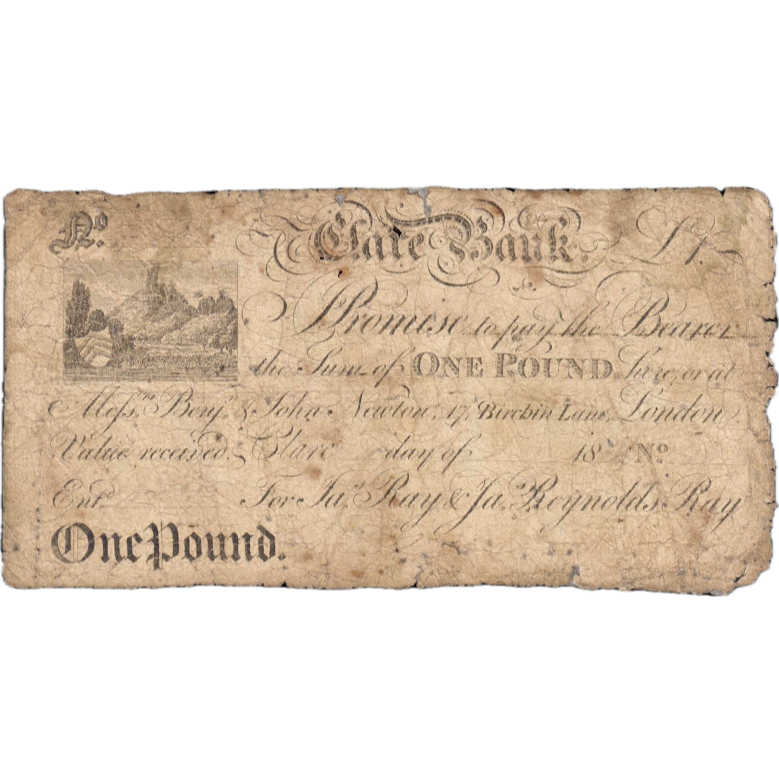 No. Clare Bank. £1
I Promise to pay the Bearer
the Sum of ONE POUND here, or at
Messrs. Benjn. & John Newton, 17, Birchin Lane, London
Value received, Clare day of 18 No.
Ent. For Jas. Ray & Jas. Reynolds Ray
One Pound.